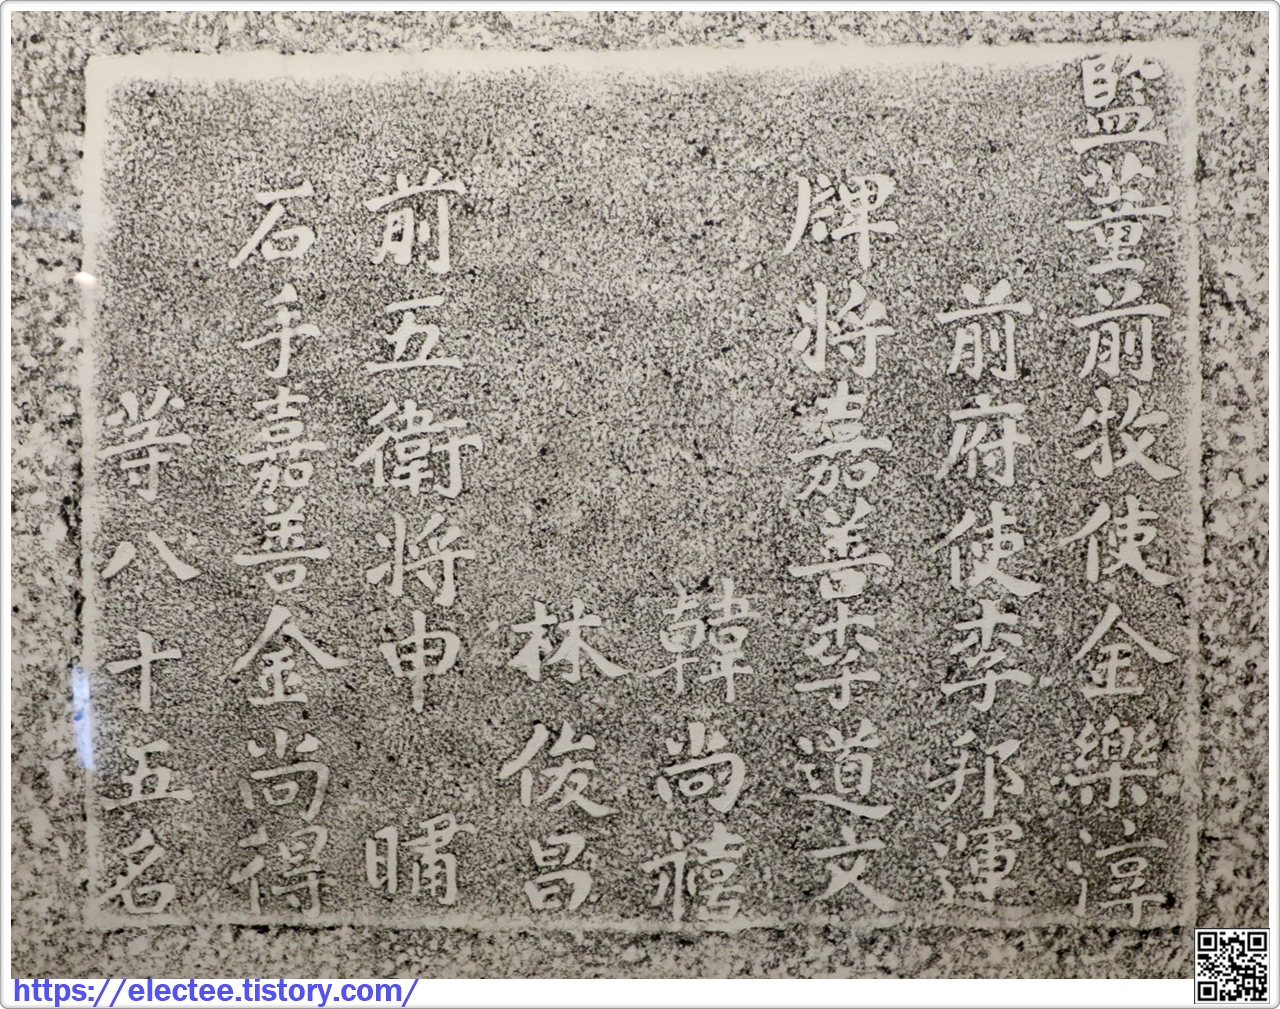 監董前牧使金樂淳
前府使李邦運
牌將嘉善李道文
韓尚禧
林俊昌
前五衛將申 㬘
石手嘉善金尚得
等八十五名
https://electee.tistory.com/